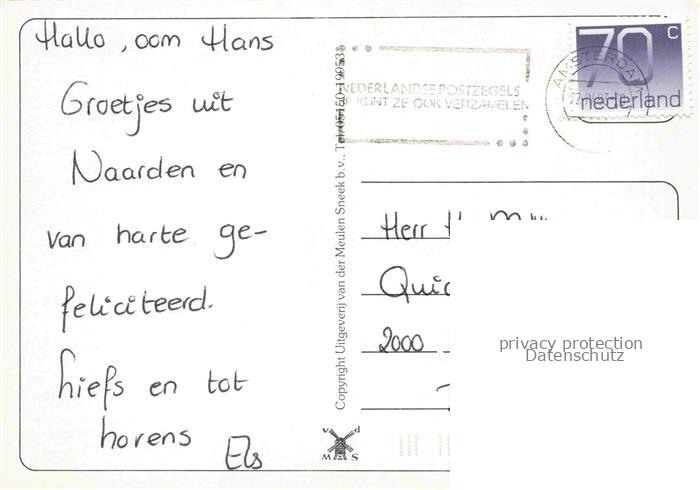 Hallo, oom Hans
Groetjes uit
Naarden en
van harte ge-
feliciteerd.
hiefs en tot
horens
Els
Copyright Uitgeverij van der Meulen Sneek b.v., Tel.
v d
M A S
NEDERLANDSE POSTZEGELS
KUNT ZE OOK VERZAMELEN
AMSTERDAM
70 c
nederland
Herr
2000
privacy protection
Datenschutz